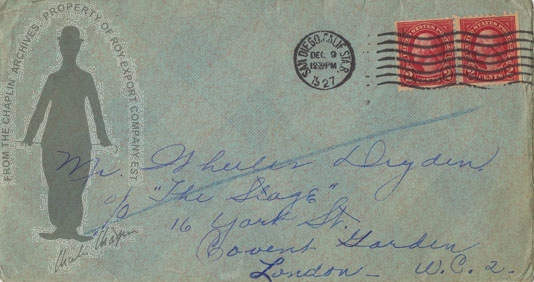 FROM THE CHAPLIN ARCHIVES. PROPERTY OF ROY EXPORT COMPANY EST
Charlie Chaplin
SAN DIEGO, CALIF. STA. R.
DEC 9
12 PM
1927
Mr. Wheeler Dryden.
c/o "The Stage"
16 York St.
Covent Garden
London - W.C. 2.